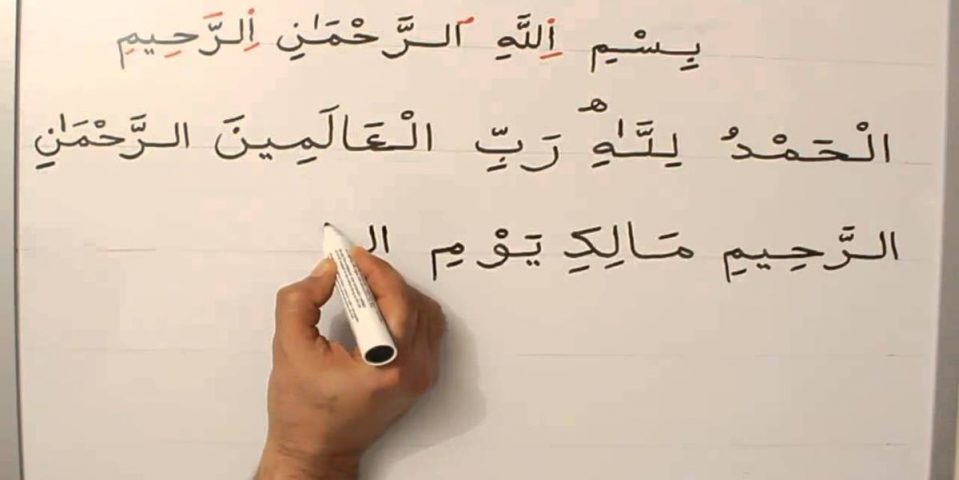 بِسْمِ اِللَّهِ الرَّحْمَٰنِ اِلرَّحِيمِ
الْحَمْدُ لِلَّٰهِ رَبِّ الْعَالَمِينَ الرَّحْمَٰنِ
الرَّحِيمِ مَالِكِ يَوْمِ ال